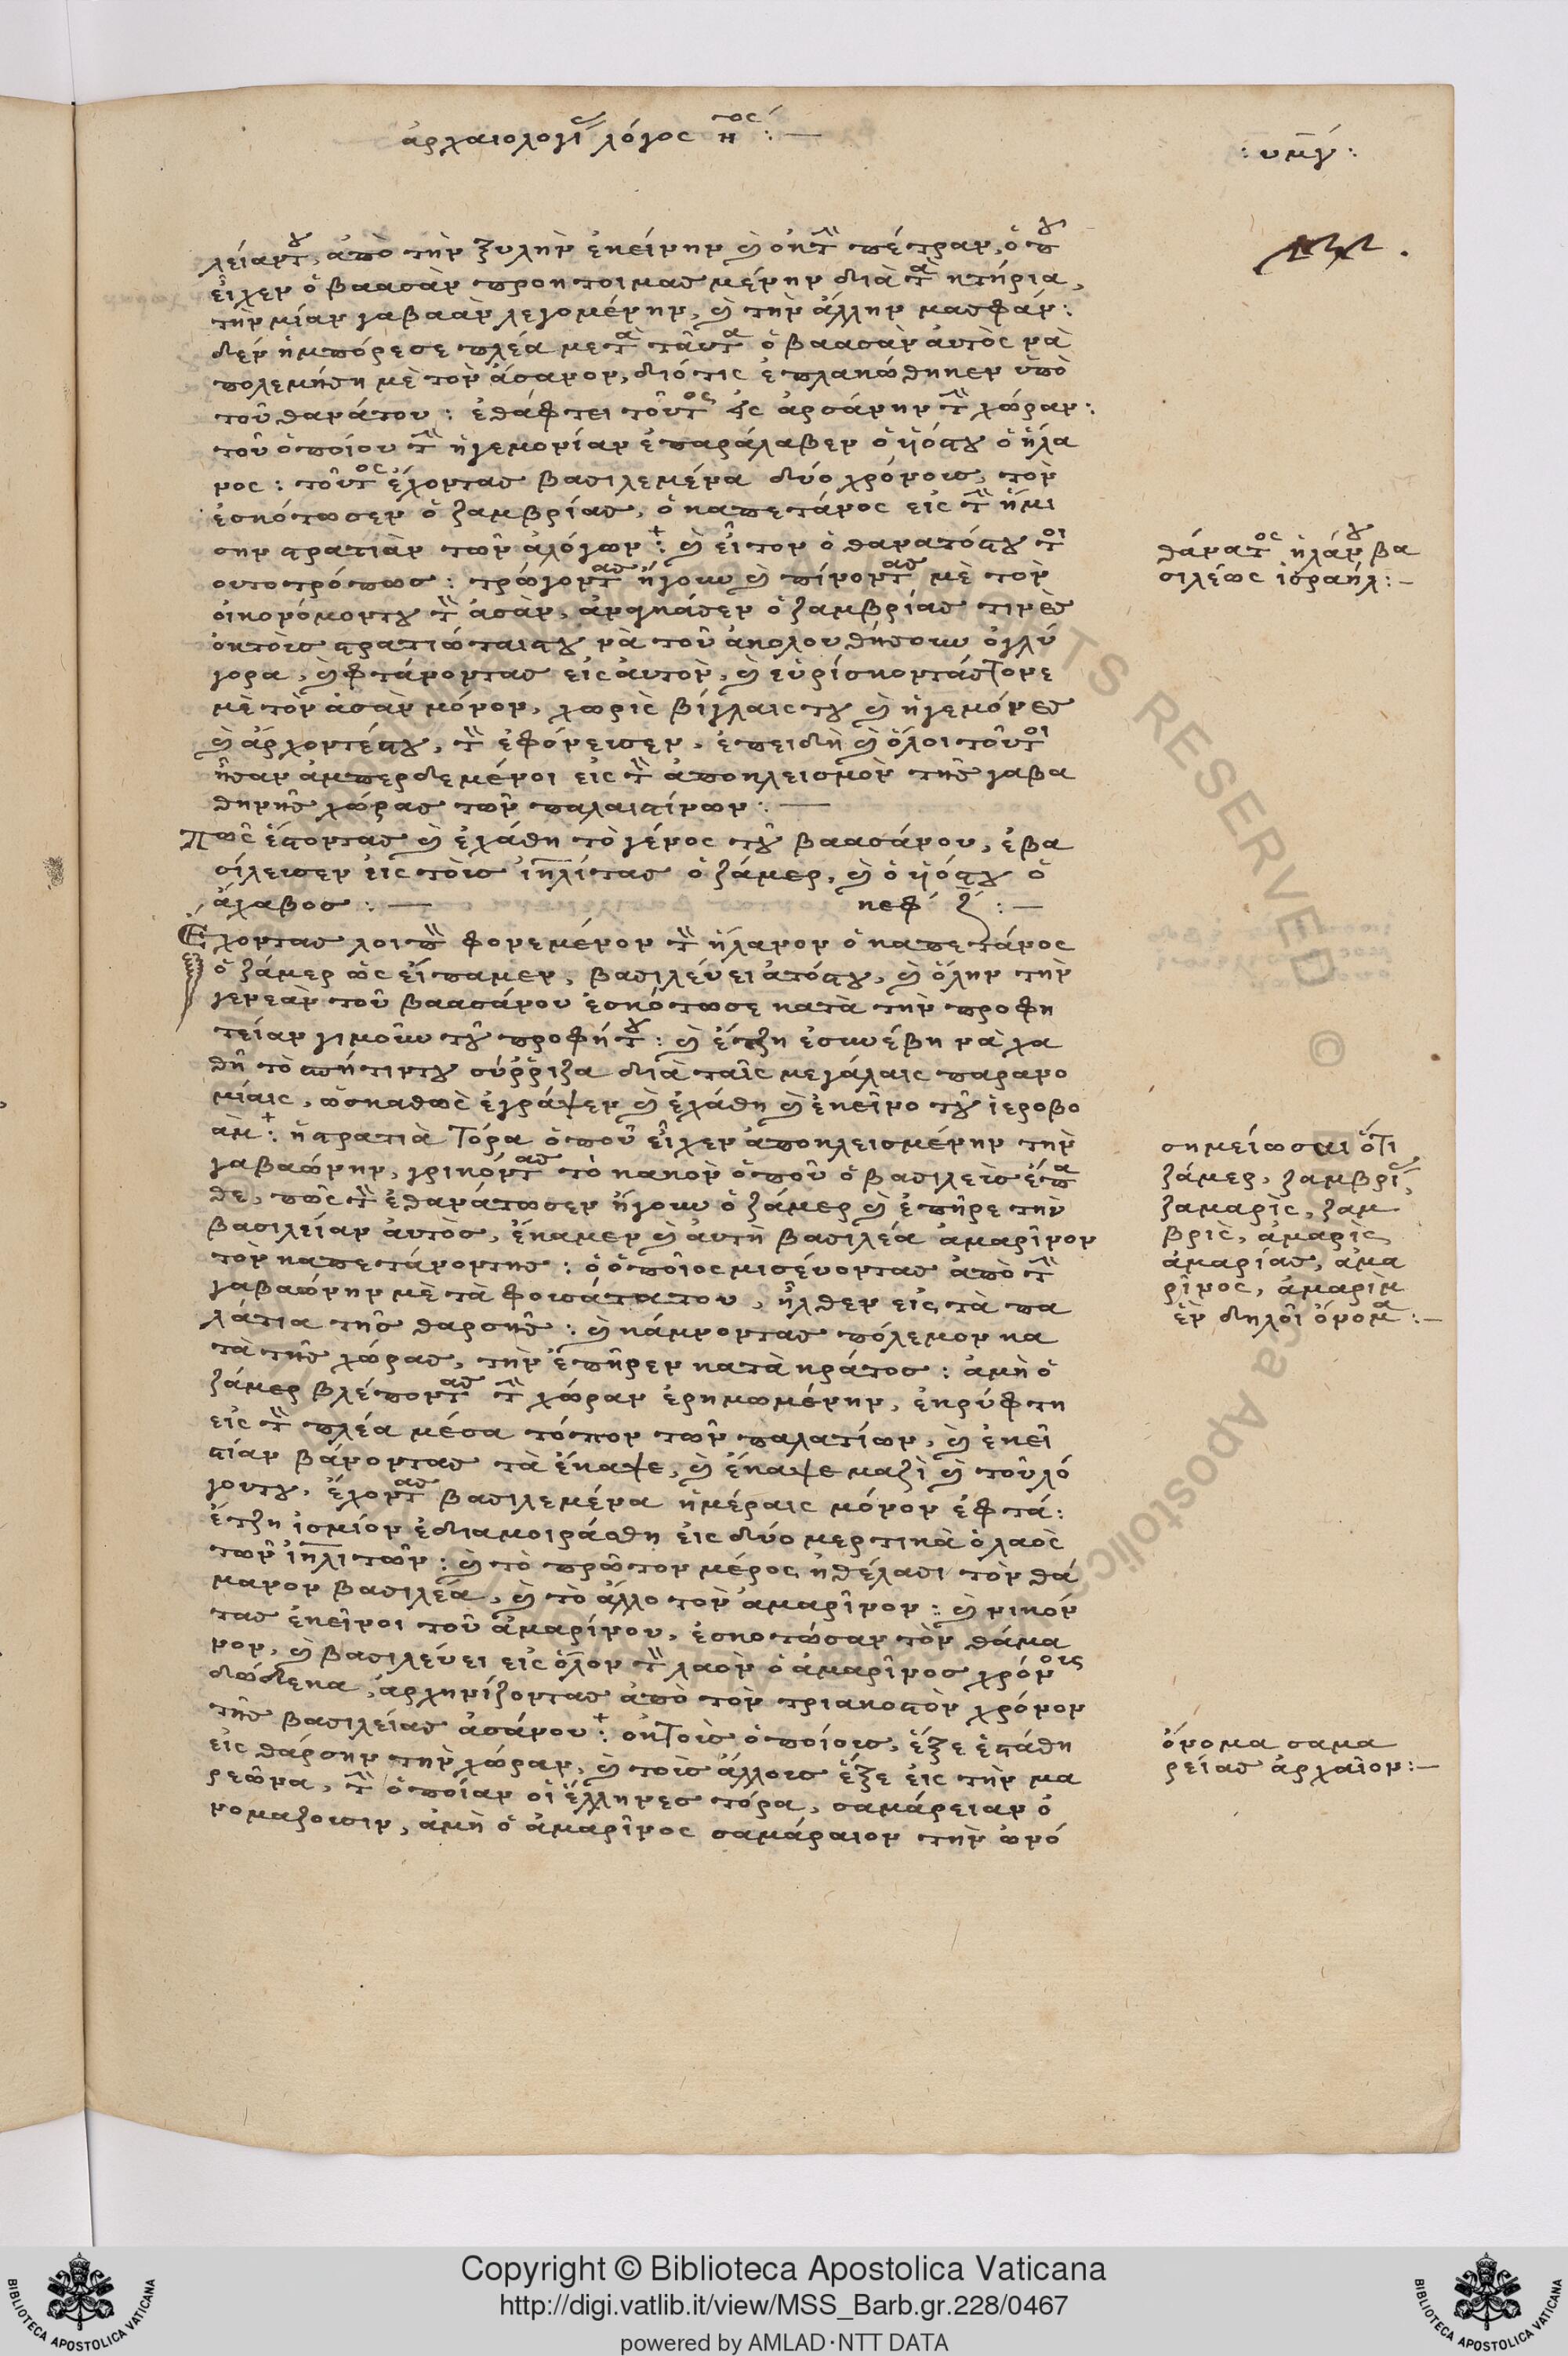 ἀρχαιολογίας λόγος ηος :—
: υμγ :
λείαντου, ἀπὸ τὴν ξυλὴν ἐκείνην καὶ ὀκτὴν πέτραν, ὁποῦ
εἶχεν ὁ βαασὰν προητοιμασμένην διὰ τὰ κτήρια,
τὴν μίαν γαβαὰν λεγομένην, καὶ τὴν ἄλλην μασφάν :
δὲν ἠμπόρεσε πλέα μετὰ ταῦτα ὁ βαασὰν ἀυτὸς νὰ
πολεμήση μὲ τὸν ἄσανον, διότις ἐπλακώθηκεν ὑπὸ
τοῦ θανάτου : ἐθάφτει τοῦτος εἰς ἀρσάνην τὴν χώραν :
τοῦ ὁποίου τὴν ἡγεμονίαν ἐπαράλαβεν ὁ ἡόςτου ὁ ἤλα
νος : τοῦτος ἔχοντας βασιλεμένα δύο χρόνους, τὸν
ἐσκότωσεν ὁ ζαμβρίας, ὁ καπετάνος εἰς τὴν ἥμι
σην στρατιὰν τῶν ἀλόγων+ : καὶ εἶτον ὁ θανατόςτου τοι
ουτοτρόπως : τρώγοντας ἤγουν καὶ πίνοντας μὲ τὸν
οἰκονόμοντου τὴν ἀσὰν, ἀναγκάσεν ὁ ζαμβρίας τινὲς
ὀκτοὺς στρατιώταιςτου νὰ τοῦ ἀκολουθήσουν ὀγλύ
γορα, καὶ φτάνοντας εἰς ἀυτὸν, καὶ εὑρίσκοντάςτονε
μὲ τὸν ἀσὰν μόνον, χωρὶς βίγλαιςτου καὶ ἡγεμόνες
καὶ ἀρχοντέςτου, τὸν ἐφόνευσεν, ἐπειδὴ καὶ ὅλοι τοῦτοι
ἦσαν ἀμπερδεμένοι εἰς τὸν ἀποκλεισμὸν τῆς γαβα
θηνῆς χώρας τῶν παλαιστίνων :—
πῶς ἔστοντας καὶ ἐχάθη τὸ γένος τοῦ βαασάνου, ἐβα
σίλευσεν εἰς τοὺς ἰηλίτας ὁ ζάμερ, καὶ ὁ ἡόςτου ὁ
ἄχαβος :— κεφ ζ :—
Ἔχοντας λοιπὸν φονεμένον τὸν ἤλανον ὁ καπετάνος
ὁ ζάμερ ὡς εἴπαμεν, βασιλεύει ἀτόςτου, καὶ ὅλην τὴν
γενεὰν τοῦ βαασάνου ἐσκότωσε κατὰ τὴν προφη
τείαν γιμοῦν τοῦ προφήτου : καὶ ἔτζη ἐσυνέβη νὰ χα
θῆ τὸ σπήτιντου σύῤῥιζα διὰ ταῖς μεγάλαις παρανο
μίαις, ὥσκαθὼς ἐγράψεν καὶ ἐχάθη καὶ ἐκεῖνο τοῦ ἱεροβο
ὰμ+ : ἡ στρατιὰ τόρα ὁποῦ εἶχεν ἀποκλεισμένην τὴν
γαβαώνην, γρικόντας τὸ κακὸν ὁποῦ ὁ βασιλεὺς ἔπα
θε, πῶς τὸν ἐθανάτωσεν ἤγουν ὁ ζάμερ καὶ ἐπῆρε τὴν
βασιλείαν ἀυτὸς, ἔκαμεν καὶ ἀυτὴ βασιλέα ἀμαρῖνον
τὸν καπετάνοντης : ὁ ὁποῖος μισέυοντας ἀπὸ τὴν
γαβαώνην μὲ τὰ φουσάτατου, ἦλθεν εἰς τὰ πα
λάτια τῆς θαρσῆς : καὶ κάμνοντας πόλεμον κα
τὰ τῆς χώρας, τὴν ἐπῆρεν κατὰ κράτος : ἀμὴ ὁ
ζάμερ βλέποντας τὴν χώραν ἐρημωμένην, ἐκρύφτη
εἰς τὸν πλέα μέσα τόπον τῶν παλατίων, καὶ ἐκεῖ
στίαν βάνοντας τὰ ἔκαψε, καὶ ἔκαψε μαζὶ καὶ τοῦλό
γουτου, ἔχοντας βασιλεμένα ἡμέραις μόνον ἑφτά :
ἔτζη ἰσμίον ἐδιαμοιράσθη εἰς δύο μερτικὰ ὁ λαὸς
τῶν ἰηλιτῶν : καὶ τὸ πρῶτον μέρος ἠθέλασι τὸν θά
μανον βασιλέα, καὶ τὸ ἄλλο τὸν ἀμαρῖνον : καὶ νικόν
τας ἐκεῖνοι τοῦ ἀμαρίνου, ἐσκοτώσαν τὸν θάμα
νον, καὶ βασιλέυει εἰς ὅλον τὸν λαὸν ὁ ἀμαρῖνος χρόνους
δώδεκα, ἀρχηνίζοντας ἀπὸ τὸν τριακοστὸν χρόνον
τῆς βασιλείας ἀσάνου+ : ὀκτοὺς ὁποίους, ἕξε ἐστάθη
εἰς θάρσην τὴν χώραν, καὶ τοὺς ἄλλους ἕξε εἰς τὴν μα
ρεῶνα, τὴν ὁποίαν οἱ ἕλληνες τόρα, σαμάρειαν ὀ
νομαζουσιν, ἀμὴ ὁ ἀμαρῖνος σαμάραιον τὴν ὠνό
θάνατος ἠλάνου βα
σιλέως ἰσραήλ :—
σημείωσαι ὅτι
ζάμερ, ζαμβρίας,
ζαμαρὶς, ζαμ
βρὶς, ἀμαρὶς,
ἀμαρίας, ἀμα
ρῖνος, ἀμαρὶμ
ἓν δηλοῖ ὄνομα :—
ὄνομα σαμα
ρείας ἀρχαῖον :—
ALL RIGHTS RESERVED © Biblioteca Apostolica Vaticana
Copyright © Biblioteca Apostolica Vaticana
http://digi.vatlib.it/view/MSS_Barb.gr.228/0467
powered by AMLAD·NTT DATA
BIBLIOTECA APOSTOLICA VATICANA
BIBLIOTECA APOSTOLICA VATICANA